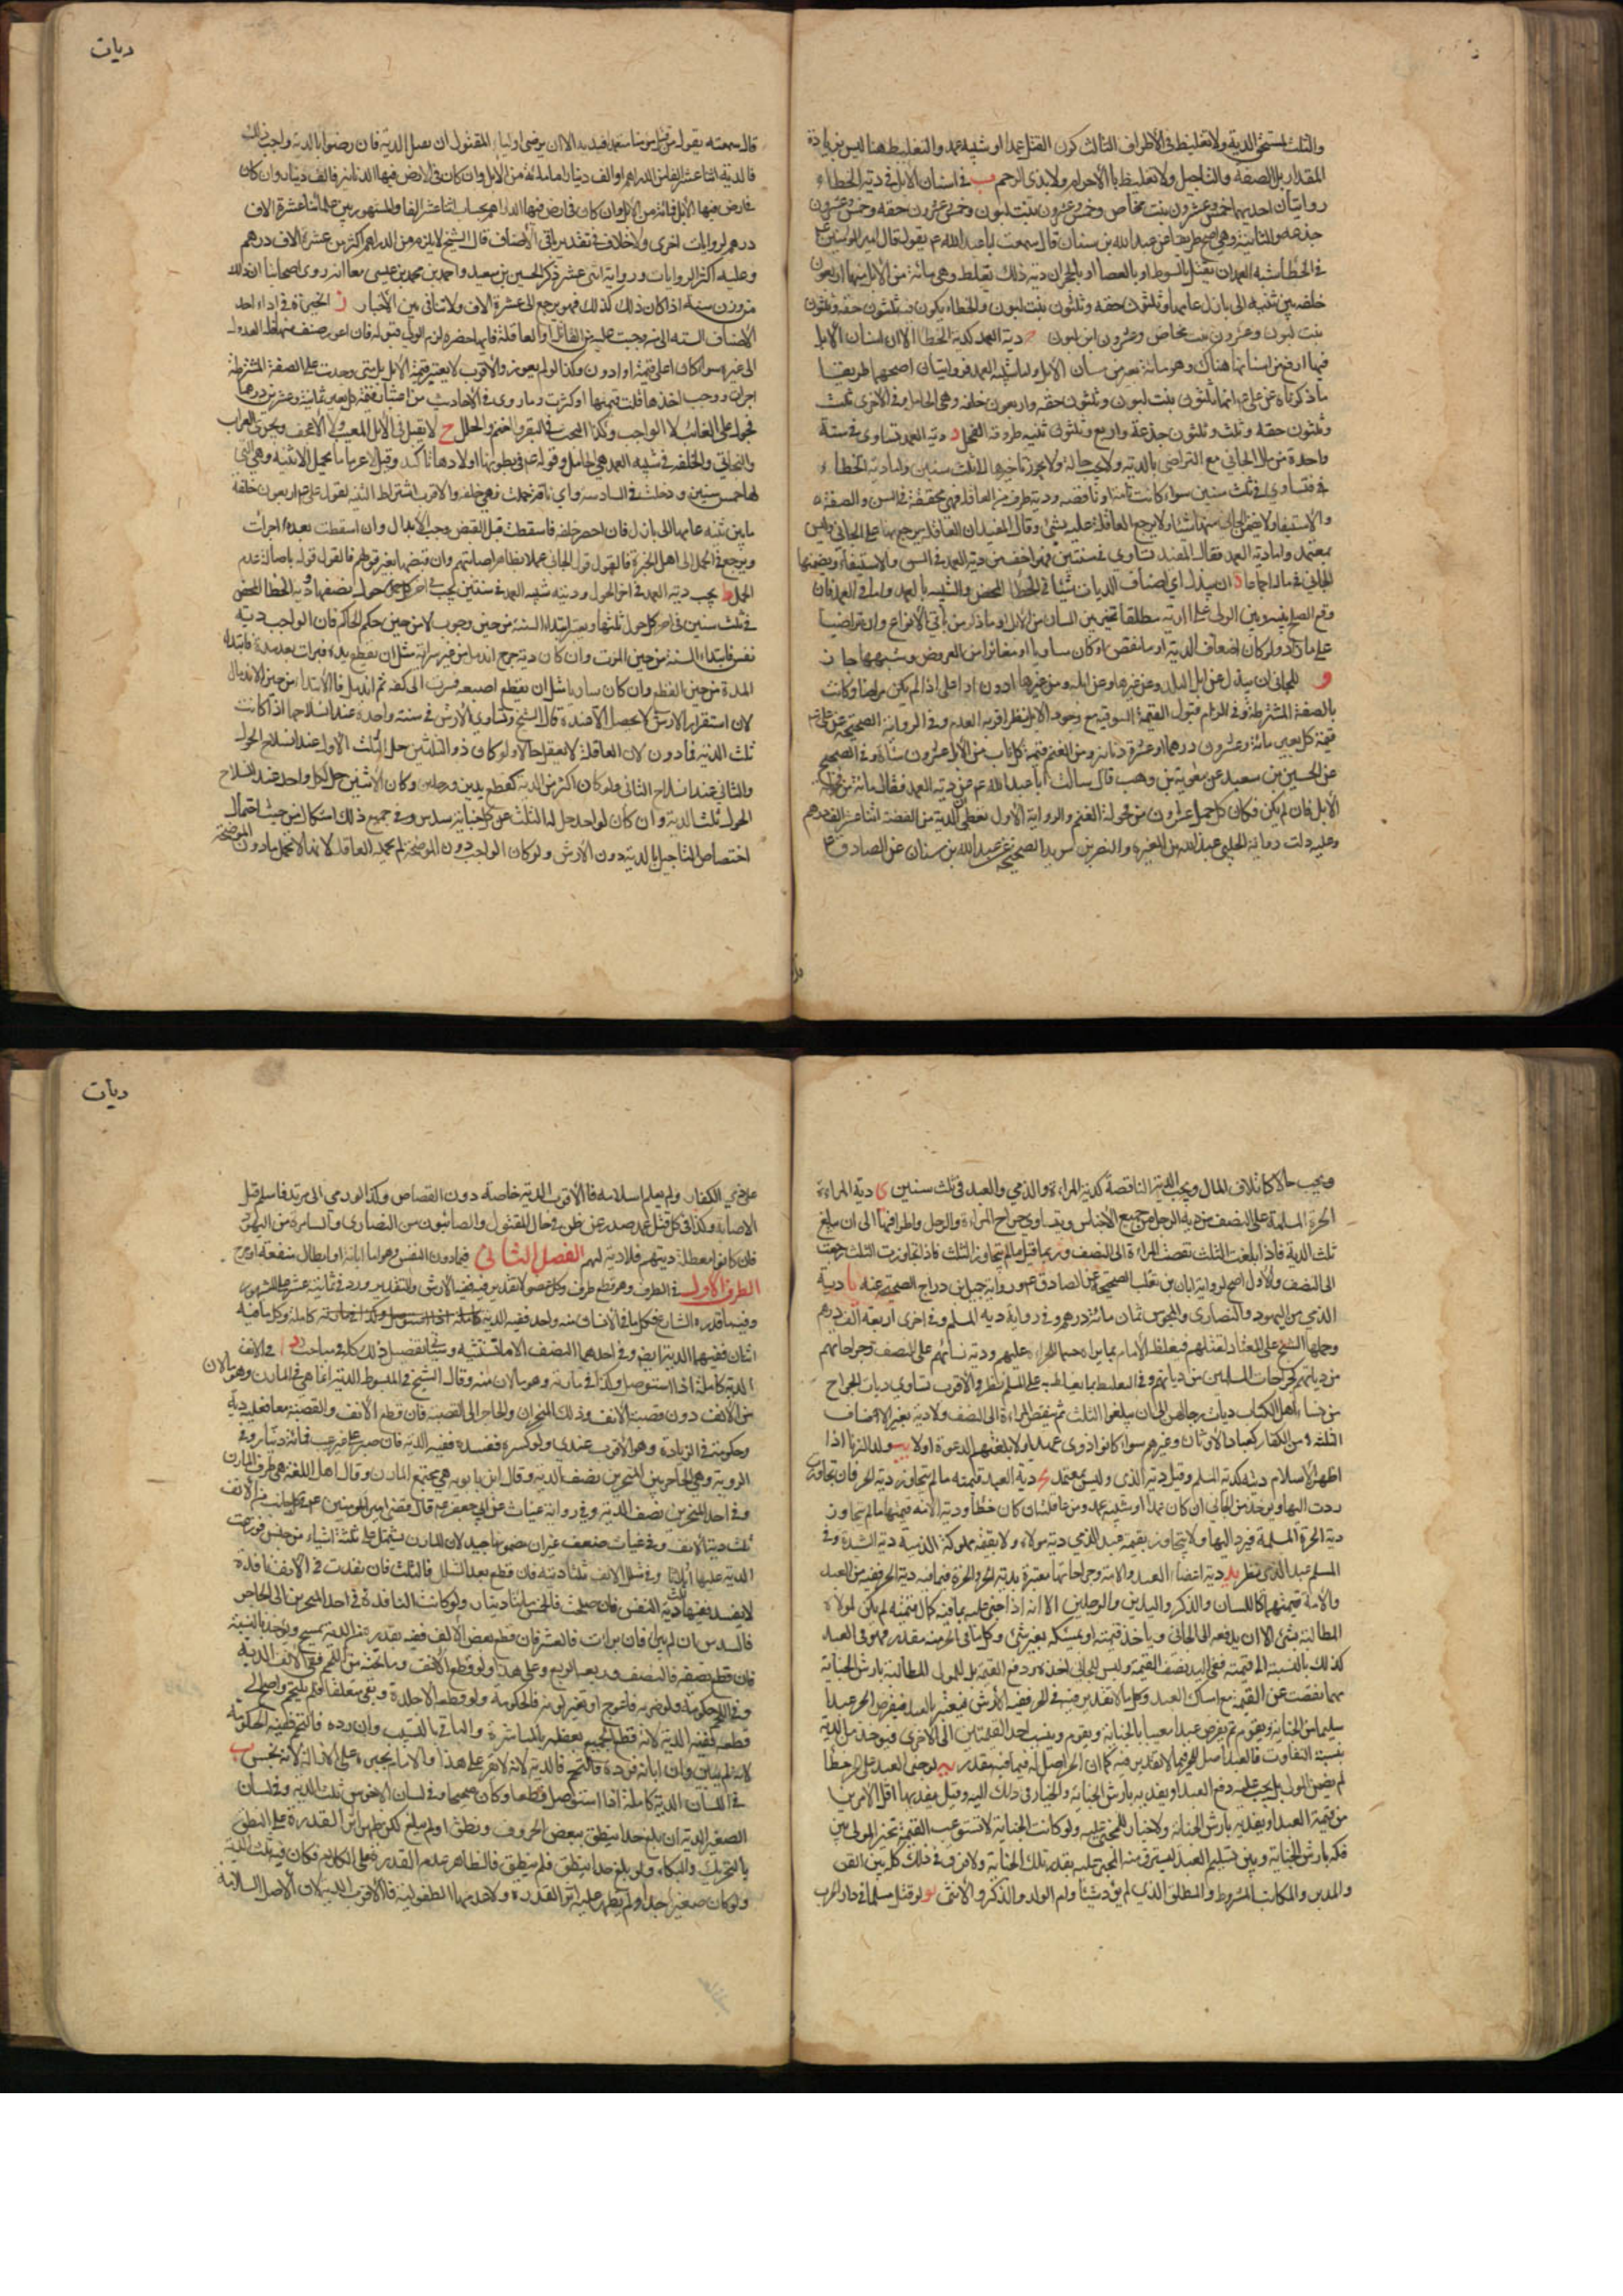 والثلث يستحق الدية ولا تغليظ في الأطراف الثالث كون القتل عمدا او شبيه عمد والتغليظ هنا ليس بزيادة
المقدار بل الصفة والتاجيل ولا تغليظ بالأحرام ولا بذي الرحم ب في اسنان الابل في دية الخطاء
روايتان احديهما خمس وعشرون بنت مخاض وخمس وعشرون بنت لبون وخمس وعشرون حقه وخمس وعشرون
جذعه والثانية وهي اصح طريقا عن عبد الله بن سنان قال سمعت ابا عبد الله ع يقول قال امير المؤمنين ع
في الخطأ شبه العمد ان يقتل بالسوط او بالعصا او بالحجر ان دية ذلك تغلظ وهي مائة من الابل منها اربعون
خلفه بين ثنيه الى بازل عامها وثلثون حقه وثلثون بنت لبون والخطاء يكون فيه ثلثون حقه وثلثون
بنت لبون وعشرون بنت مخاض وعشرون ابن لبون ج دية العمد كدية الخطا الا ان اسنان الابل
فيها ارفع من اسنانها هناك وهو مائة بعير من مسان الابل واما شبيه العمد فروايتان اصحهما طريقا
ما ذكرناه عن علي ع انها ثلثون بنت لبون وثلثون حقه واربعون خلفه وهي الحامل وفي الاخرى ثلث
وثلثون حقه وثلث وثلثون جذعة واربع وثلثون ثنيه طروقه الفحل د دية العمد تستادى في سنة
واحدة من مال الجاني مع التراضي بالدية ولا يجب حالة ولا يجوز تاخيرها لثلاث سنين واما دية الخطاء
فتستادى في ثلث سنين سواء كانت تامة او ناقصه ودية طرف من العاقله فهي مخففة في السن والصفة
والاستيفاء ولا يضمن الجاني منها شيئا ولا يرجع العاقلة عليه بشيء وقال المفيد ان العاقلة يرجع بها على الجاني وليس
بمعتمد واما دية شبيه العمد فقال المفيد تستادى في سنتين فهو اخف من دية العمد في السن والاستيفاء ويضمنها
الجاني في ماله اجماعا ه ان يبذل اي اصناف الديات شيئا في الخطا المحض والشبيه بالعمد واما في العمد فان
وقع الصلح بينه وبين الولي على الدية مطلقا تخير بين المسان من الابل او ما ذكر من باقي الانواع وان تراضيا
على ما زاد ولو كان اضعاف الدية او ما نقص او كان مساويا او مغايرا من العروض وشبهها جاز
و للجاني ان يبذل من ابل البلد وعن غيرها وعن ابله ومن غيرها ادون او اعلى اذا لم يكن مراضا وكانت
بالصفة المشترطة وفي الزام قبول القيمة السوقية مع وجود الابل نظر اقربه العدم وفي الرواية الصحيحة عن علي ع
قيمة كل بعير مائة وعشرون درهما او عشرة دنانير ومن الغنم قيمة كل ناب من الابل عشرون شاة وفي الصحيح
عن الحسين بن سعيد عن معوية بن وهب قال سالت ابا عبد الله ع عن دية العمد فقال مائة من فحولة
الابل فان لم يكن فمكان كل جمل عشرون من فحولة الغنم والرواية الاولى نعطي الدية من الفضة اثنا عشر الف درهم
وعليه دلت رواية الحلبي عبد الله بن المغيرة والنضر بن سويد الصحيحة عن عبد الله بن سنان عن الصادق ع
ديات
قال سمعته يقول من قتل مؤمنا متعمدا قيد به الا ان يرضى اولياء المقتول ان يقبلوا الدية فان رضوا بالدية واحب ذلك
فالدية اثنا عشر الفا من الدراهم او الف دينار او مائة من الابل وان كان في ارض فيها الدنانير فالف دينار وان كان
في ارض فيها الابل فمائة من الابل وان كان في ارض فيها الدراهم بحساب اثنا عشر الفا والمشهور بين علمائنا عشرة الاف
درهم لروايات اخرى ولا خلاف في تقدير باقي الاصناف قال الشيخ لا يلزمه من الدراهم اكثر من عشرة الاف درهم
وعليه اكثر الروايات ورواية اثنى عشر ذكر الحسين بن سعيد واحمد بن محمد بن عيسى معا انه روى اصحابنا ان ذلك
من وزن ستة اذا كان ذلك كذلك فهو يرجع الى عشرة الاف ولا تنافي بين الاخبار ز الخيرة في اداء احد
الاصناف السته الى من وجبت عليه من القاتل او العاقلة فايها احضره لزم الولي قبوله فان اعوز صنف منها فله العدول
الى غيره سواء كان اعلى قيمة او ادون وكذا لو لم يعوز والاقرب لا يعتبر قيمة الابل بل متى وجدت على الصفة المشترطة
اجزات ووجب اخذها قلت قيمتها او كثرت وما روى في الاحاديث من اعتبار قيمة كل بعير بمائة وعشرين درهما
محمول على الغالب لا الواجب وكذا البحث في البقر والغنم والحلل ح لا يقبل في الابل المعيب ولا الأعجف ويجزي العراب
والبخاتي والخلفه في شبيه العمد هي الحامل وقوله ع في بطونها اولادها تاكيد وقيل لاعرابي ما يحمل الا ثنية وهي التي
لها خمس سنين ودخلت في السادسة واي ناقة حملت فهي خلفه والاقرب اشتراط الثنيه لقوله على ع اربعون خلفة
ما بين ثنيه عامها الى بازل فان احضر خلفه فاسقطت قبل القبض وجب الابدال وان اسقطت بعده اجزات
ويرجع في الحمل الى اهل الخبرة فالقول قول الجاني عملا بظاهر اصابتهم وان قبضها بغير قولهم فالقول قوله باصالة عدم
الحمل ط يجب دية العمد في اخر الحول ودية شبيه العمد في سنتين يجب في اخر كل حول نصفها ودية الخطا المحض
في ثلث سنين في اخر كل حول ثلثها ويعتبر ابتداء السنة من حين وجوبه لا من حين حكم الحاكم فان كان الواجب دية
نفس فابتداء السنة من حين الموت وان كان دية جرح اندمل من غير سراية مثل ان يقطع يده فبرات بعد مدة فابتداء
المدة من حين القطع وان كان ساريا مثل ان يقطع اصبعه فسرت الى كفه ثم اندمل فالابتداء من حين الاندمال
لان استقرار الارش لا يحصل الا عنده قال الشيخ وتستادى الأرش في سنة واحدة عند انسلاخها اذا كانت
ثلث الدية فما دون لان العاقلة لا تعقل حالا ولو كان دون الثلثين حل الثلث الاول عند انسلاخ الحول
والثاني عند انسلاخ الثاني ولو كان اكثر من الدية كقطع يدين ورجلين وكان لاثنين حل لكل واحد عند انسلاخ
الحول ثلث الدية وان كان لواحد حل له الثلث عن كل جناية سدس وفي جميع ذلك اشكال من حيث احتمال
اختصاص التاجيل بالدية دون الارش ولو كان الواجب دون الموضحة لم تحمله العاقلة لانها لا تحمل ما دون الموضحة
ويجب حالا كاتلاف المال ويجب الدية الناقصة كدية المراة والذمي والعبد في ثلث سنين يا دية المراة
الحرة المسلمة على النصف من دية الرجل من جميع الاجناس ويتساوى جراح المراة والرجل واطرافهما الى ان يبلغ
ثلث الدية فاذا بلغت الثلث نقصت المراة الى النصف وربما قيل ما لم يتجاوز الثلث فاذا تجاوزت الثلث رجعت
الى النصف والاول اصح لرواية ابان بن تغلب الصحيحة عن الصادق ع ورواية جميل بن دراج الصحيحة عنه يب دية
الذمي من اليهود والنصارى والمجوس ثمان مائة درهم وفي رواية دية المسلم وفي اخرى اربعة الف درهم
وحملها الشيخ على المعتاد لقتلهم فيغلظ الامام بما يراه حسما للجراة عليهم ودية نسائهم على النصف وجراحاتهم
من دياتهم كجراحات المسلمين من دياتهم وفي التغليظ بما يغلظ به على المسلم نظر والاقرب تساوي ديات الجراح
من نساء اهل الكتاب ديات رجالهن الى ان يبلغوا الثلث ثم ينقص المراة الى النصف ولا دية لغير الاصناف
الثلثة من الكفار كعباد الاوثان وغيرهم سواء كانوا ذوى عهد او لا بلغتهم الدعوة او لا يج ولد الزنا اذا
اظهر الاسلام ديته كدية المسلم وقيل دية الذمي وليس بمعتمد يد دية العبد قيمته ما لم يتجاوز دية الحر فان تجاوزت
ردت اليها ويؤخذ من الجاني ان كان عمدا او شبيه عمد ومن عاقلته ان كان خطأ ودية الامة قيمتها ما لم يتجاوز
دية الحرة المسلمة فيرد اليها ولا يتجاوز بقيمة عبد الذمي دية مولاه ولا بقيمة مملوكة الذمية دية السيدة وفي
المسلم عبد الذمي نظر يه دية اعضاء العبد والامة وجراحاتهما معتبرة بدية الحر والحرة فيما فيه دية الحر ففيه من العبد
والامة قيمتهما كاللسان والذكر واليدين والرجلين الا انه اذا جنى عليه بما فيه كمال قيمته لم يكن لمولاه
المطالبة بشئ الا ان يدفعه الى الجاني وياخذ قيمته او يمسكه بغير شئ وكل ما في الحر منه مقدر فهو في العبد
كذلك بالنسبة الى قيمته ففي اليد نصف القيمة وليس للجاني اخذه ودفع القيمة بل للمولى المطالبة بارش الجناية
مهما نقصت عن القيمة مع امساك العبد وكل ما لا تقدير فيه في الحر ففيه الارش فيعتبر بالعبد فيفرض الحر عبدا
سليما من الجناية ويقوم ثم يفرض عبدا معيبا بالجناية ويقوم وينسب احد القيمتين الى الاخرى فيؤخذ من الدية
بنسبة التفاوت فالعبد اصل للحر فيما لا تقدير فيه كما ان الحر اصل له فيما فيه تقدير يو لو جنى العبد على الحر خطأ
لم يضمن المولى بل يجب عليه دفع العبد او يفديه بارش الجناية والخيار في ذلك اليه وقيل يفديها اقل الامرين
من قيمة العبد او يفديه بارش الجناية ولا خيار للمجني عليه ولو كانت الجناية لا تستوعب القيمة تخير المولى بين
فكه بارش الجناية وبين تسليم العبد ليسترق منه المجني عليه بقدر تلك الجناية ولا فرق في ذلك كله بين القن
والمدبر والمكاتب المشروط والمطلق الذي لم يؤد شيئا وام الولد والذكر والانثى يز لو قتل مسلما في دار الحرب
ديات
على زي الكفار ولم يعلم اسلامه فالاقرب الدية خاصه دون القصاص وكذا لو رمى الى مرتد فاسلم قبل
الاصابة وكذا في كل قتل عمد صدر عن ظن في حال المقتول والصابئون من النصارى والسامرة من اليهود
فان كانوا معطلة دينهم فلا دية لهم الفصل الثاني فيما دون النفس وهو اما ابانة او ابطال منفعة او جرح
الطرف الاول في الطرف وهو قطع طرف وكل عضو لا تقدير فيه ففيه الارش والتقدير ورد في ثمانية عشر على المشهور
وفيما قدره الشارع فكل ما في الانسان منه واحد ففيه الدية كاملة وكل ما فيه
اثنان ففيهما الدية ايضا وفي احدهما النصف الا ما نستثنيه وسيأتي تفصيل ذلك كله في مباحث ا في الانف
الدية كاملة اذا استوصل وكذا في مارنه وهو ما لان منه وقال الشيخ في المبسوط الدية انما هي في المارن وهو ما لان
من الانف دون قصبة الانف وذلك المنخران والحاجز الى القصبة فان قطع الانف والقصبة معا فعليه دية
وحكومة في الزيادة وهو الاقرب عندي ولو كسره ففسد ففيه الدية فان جبر على غير عيب فمائة دينار وفي
الروثة وهي الحاجز بين المنخرين نصف الدية وقال ابن بابويه هي مجتمع المارن وقال اهل اللغة هي طرف المارن
وفي احد المنخرين نصف الدية وفي رواية غياث عن ابي جعفر ع قال قضى امير المؤمنين ع في كل جانب من الانف
ثلث دية الانف وفي غياث ضعف غير ان مضمونها جيد لان المارن يشتمل على ثلثة اشياء من جنس فوزعت
الدية عليها اثلاثا وفي شلل الانف ثلثا ديته فان قطع بعد الشلل فالثلث فان نفذت في الانف نافذة
لا ينسد ففيها ثلث دية النفس فان صلحت فالخمس مائتا دينار ولو كانت النافذة في احد المنخرين الى الحاجز
فالسدس ان لم يبرأ فان برات فالعشر فان قطع بعض الانف ففيه بقدره من الدية يمسح ويؤخذ بالنسبة
فان قطع نصفه فالنصف وربعه الربع وعلى هذا ولو قطع الانف وما تحته من اللحم ففي الانف الدية
وفي اللحم حكومة ولو ضربه فاعوج او تغير لونه فالحكومة ولو قطعه الا جلدة وبقي معلقا فلم يلتحم واحتاج الى
قطعه ففيه الدية لانه قطع الجميع بعضه بالمباشرة والباقي بالتسبيب وان رده فالتحم ففيه الحكومة
لانه لم يبنه وان ابانه فرده فالتحم فالدية لانه لا يقر على هذا والامام يجبره على الازالة لانه نجس ب
في اللسان الدية كاملة اذا استوصل قطعا وكان صحيحا وفي لسان الاخرس ثلث الدية وفي لسان
الصغير الدية ان بلغ حدا ينطق ببعض الحروف ونطق او لم يبلغ لكن ظهر اثر القدرة على النطق
بالتحريك والبكاء ولو بلغ حدا ينطق فلم ينطق فالظاهر عدم القدرة على الكلام فكان فيه ثلث الدية
ولو كان صغيرا جدا ولم يظهر عليه اثر القدرة ولا عدمها الطفولية فالاقرب الدية لان الاصل السلامة